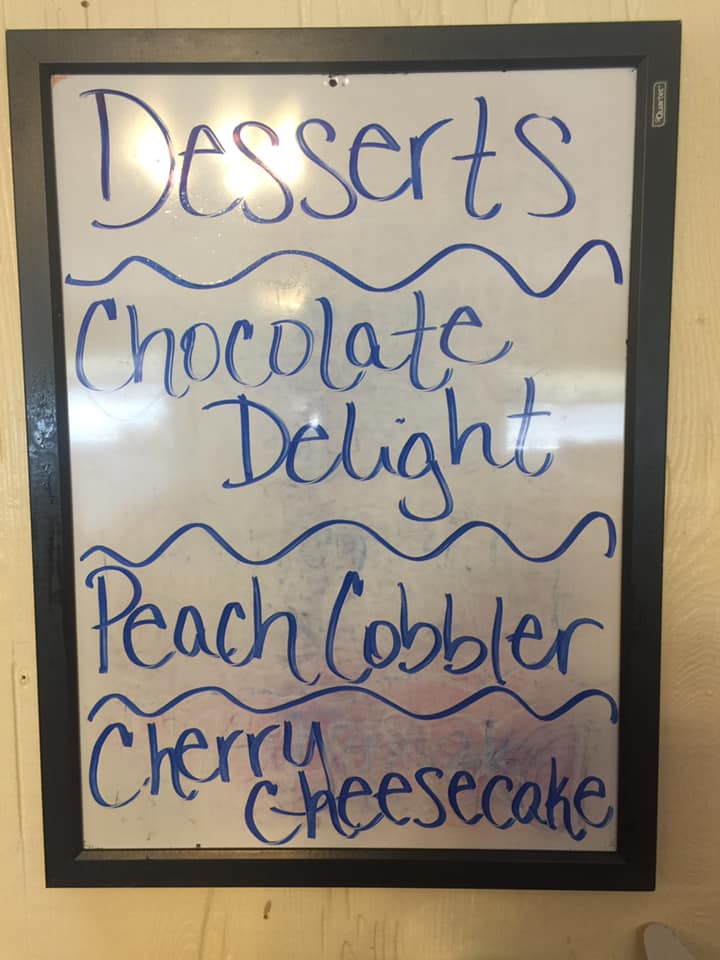 Quartet
Desserts
Chocolate
Delight
Peach Cobbler
Cherry
Cheesecake